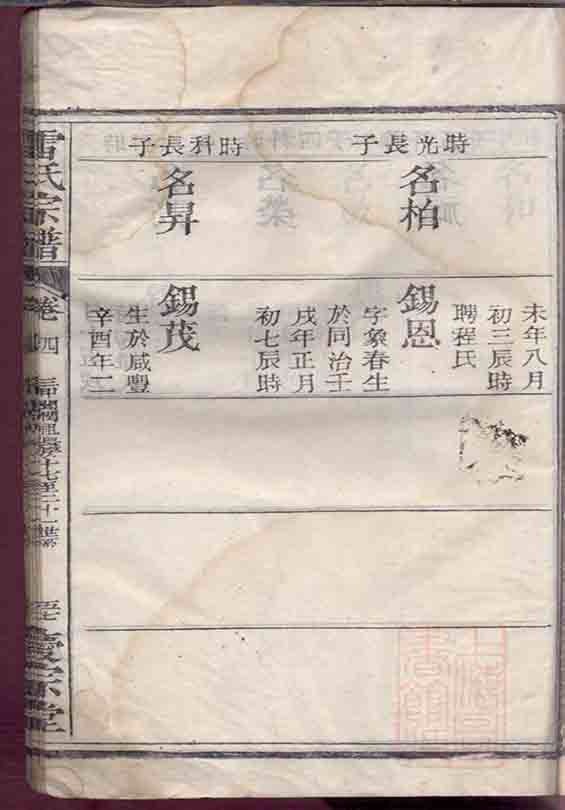 時光長子
名柏
時科長子
名昇
未年八月
初三辰時
聘程氏
錫恩
字象春生
於同治壬
戌年正月
初七辰時
錫茂
生於咸豐
辛酉年二
雷氏宗譜
卷四
十七至二十一世